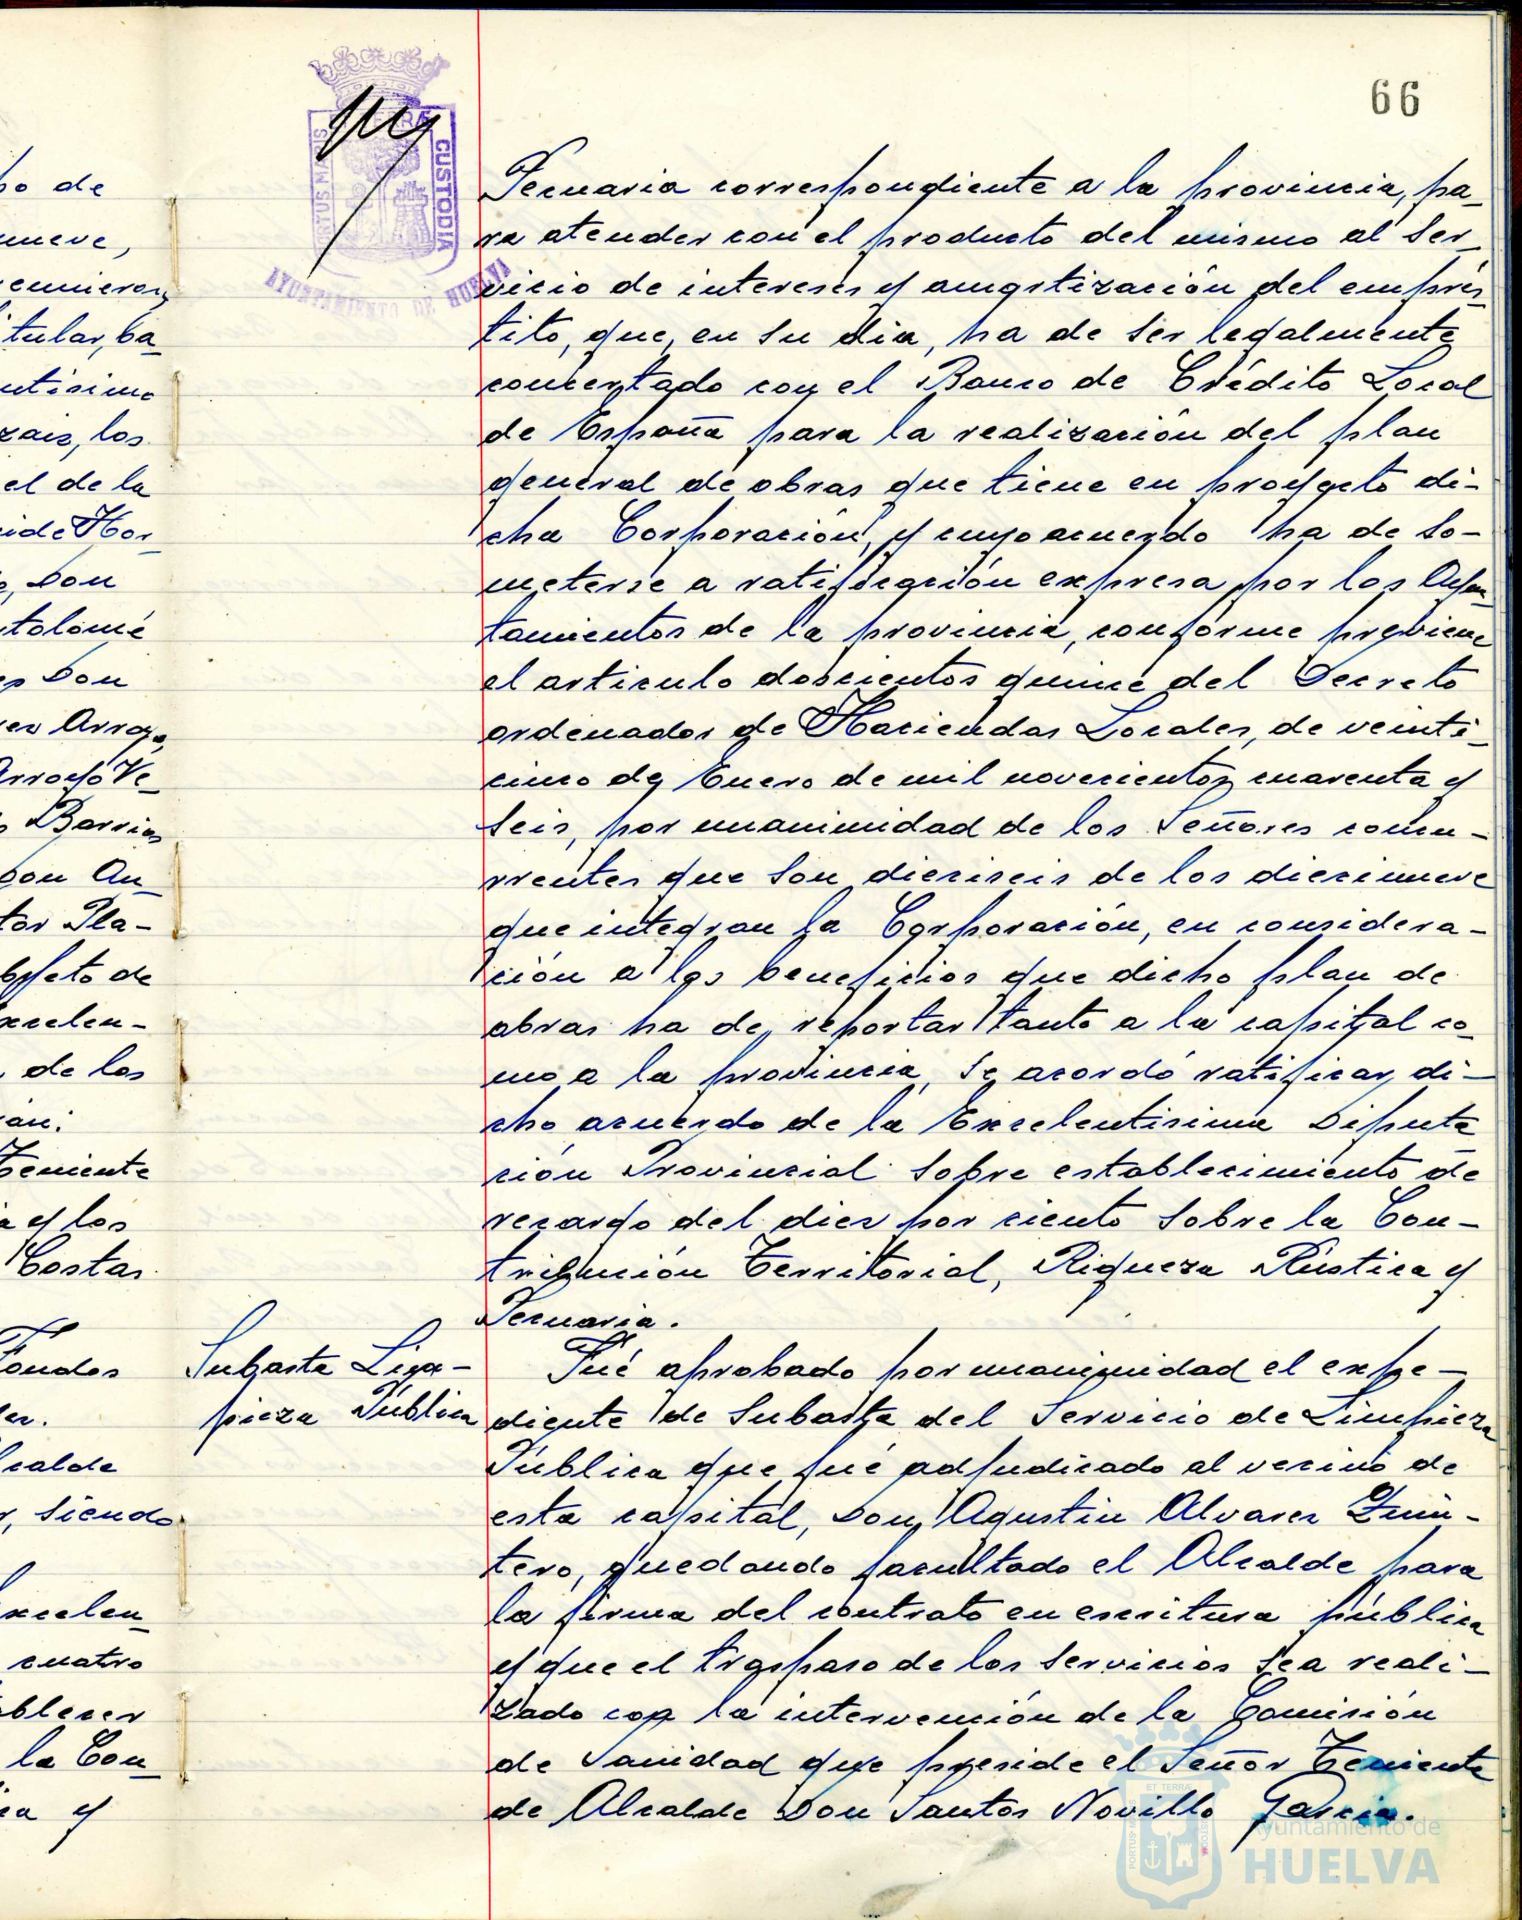 66
PORTUS MARIS ET TERRÆ CUSTODIA
AYUNTAMIENTO DE HUELVA
Pecuaria correspondiente a la provincia, pa-
ra atender con el producto del mismo al ser-
vicio de intereses y amortización del emprés-
tito, que, en su dia, ha de ser legalmente
concertado con el Banco de Crédito Local
de España para la realización del plan
general de obras que tiene en proyecto di-
cha Corporación, y cuyo acuerdo ha de so-
meterse a ratificación expresa por los Ayun-
tamientos de la provincia, conforme previene
el articulo doscientos quince del Decreto
ordenador de Haciendas Locales, de veinti-
cinco de Enero de mil novecientos cuarenta y
seis, por unanimidad de los Señores concu-
rrentes que son dieciseis de los diecinueve
que integran la Corporación, en considera-
ción a los beneficios que dicho plan de
obras ha de reportar tanto a la capital co-
mo a la provincia, se acordó ratificar di-
cho acuerdo de la Excelentisima Diputa
ción Provincial sobre establecimiento de
recargo del diez por ciento sobre la Con-
tribución Territorial, Riqueza Rústica y
Pecuaria.
Subasta Lim-
pieza Pública
Fué aprobado por unanimidad el expe-
diente de Subasta del Servicio de Limpieza
Pública que fué adjudicado al vecino de
esta capital, Don Agustin Alvarez Quin-
tero, quedando facultado el Alcalde para
la firma del contrato en escritura pública
y que el traspaso de los servicios sea reali-
zado con la intervención de la Comisión
de Sanidad que preside el Señor Teniente
de Alcalde Don Santos Novillo Garcia.
ho de
nueve,
reunieron
titular, ba-
ntisimo
los
el de la
Hor-
Don
tolomé
Don
Arroyo
Arroyo Ve-
Barrios
Don An-
tor Pla-
objeto de
xcelen-
de los
Teniente
y los
Costas
Fondos
lcalde
siendo
xcelen-
cuatro
blecer
la Con-
y
Ayuntamiento de
HUELVA